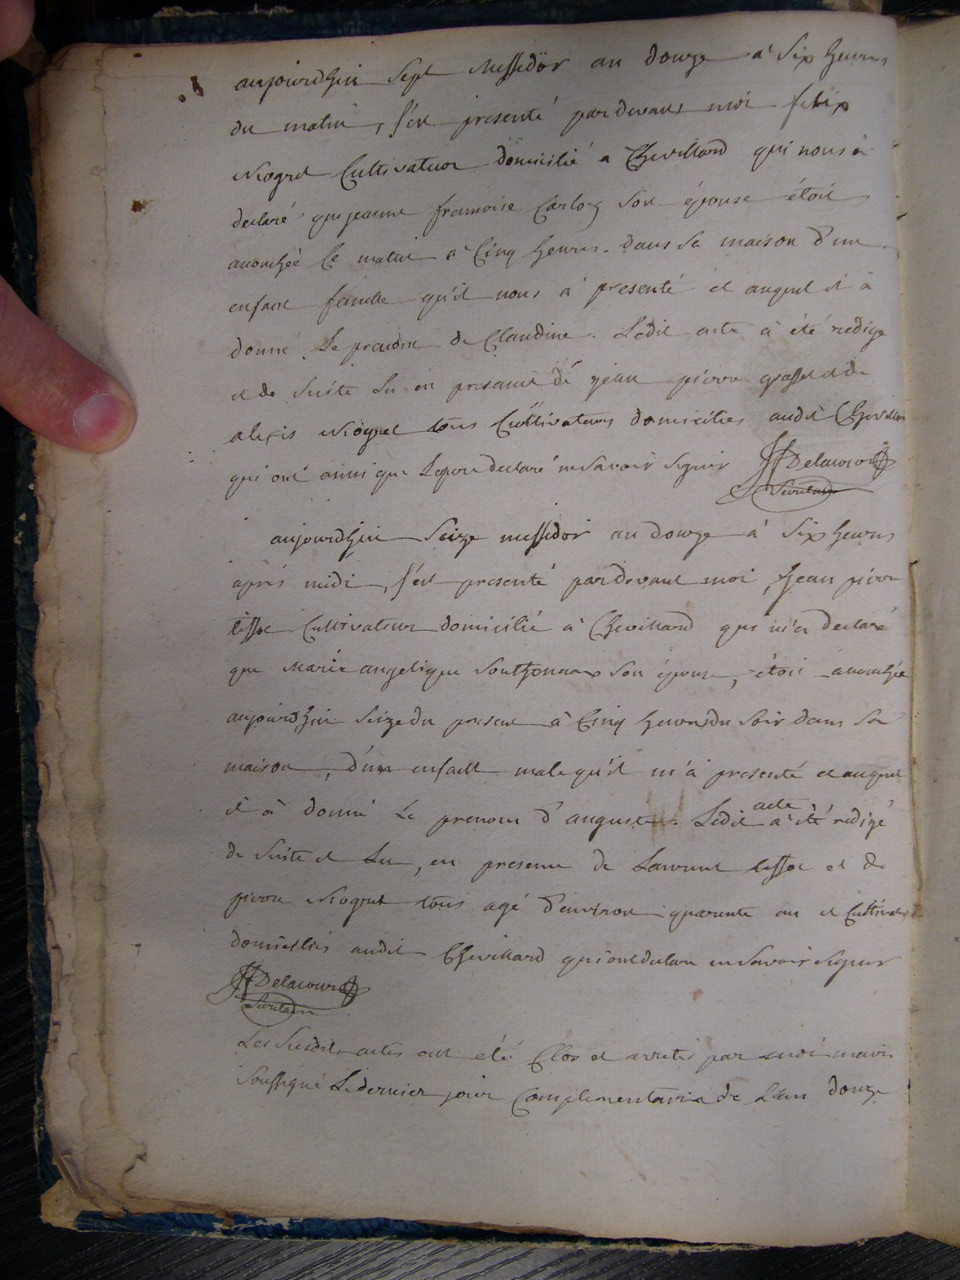 aujourdhui Sept Messidor an douze à Six heures
du matin, s'est presenté pardevant moi felix
Niogret Cultivateur domicilié a Chevillard qui nous a
declaré que jeanne francoise Carloz Son épouse étoit
accouchée Ce matin a Cinq heures. dans Sa maison d'un
enfant femelle qu'il nous a presenté et auquel il à
donné Le prenom de Claudine. Ledit acte à été redigé
et de Suite Lu en presance de jean pierre et de
alexis Niogret tous Cultivateurs domicilies audit Chevillard
qui ont ainsi que Lepere declaré ne Savoir Signer Delacour
Secretaire
aujourdhui Seize messidor an douze à Six heures
aprés midi, s'est presenté pardevant moi, jean pierre
Cultivateur domicilié à Chevillard qui m'a declaré
que Marie angelique Southonnax Son épouse, étoit accouchée
aujourdhui Seize du present à Cinq heures du Soir dans Sa
maison, d'un enfant male qu'il m'à presenté et auquel
il à donné Le prenom d'auguste. Ledit acte à été redigé
de Suite et Lu, en presence de Laurent et de
pierre Niogret tous agé d'environ quarante an et Cultivateurs
domicilies audit Chevillard qui ont declaré ne Savoir Signer
Delacour
Secretaire
Les Susdits actes ont été Clos et arretés par moi maire
Soussigné Le dernier jour Complementaire de L'an douze